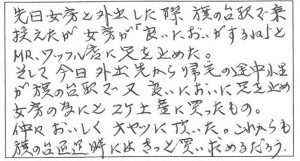 先日女房と外出した際 旗の台駅で乗
換えたが女房が「良いにおいがするね」と
MR.ワッフル店に足を止めた。
そして今日 外出先から帰宅の途中小生
が旗の台駅で又 良いにおいに足を止め
女房の為にとスケ土産に買ったもの。
仲々おいしくオヤツに頂いた。これからも
旗の台近辺時にはきっと買い求めるだろう。